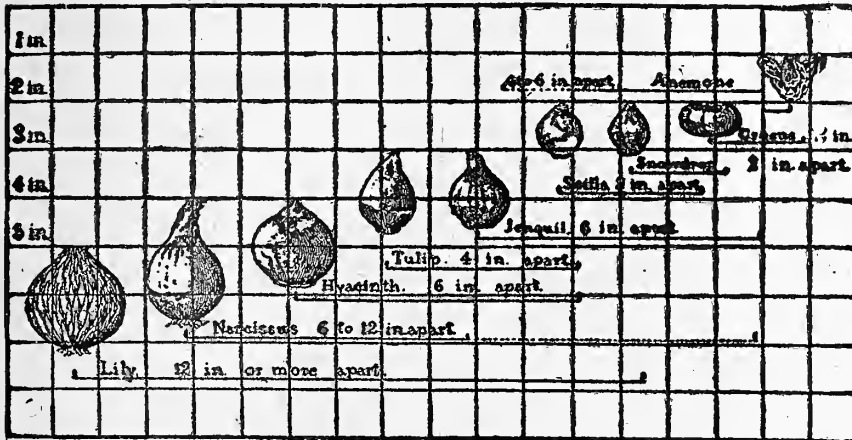 1 in.
2 in.
3 in.
4 in.
5 in.
4 to 6 in apart Anemone
Crocus
Snowdrop 2 in. apart.
Scilla 2 in. apart
Jonquil. 6 in. apart
Tulip. 4 in. apart
Hyacinth. 6 in. apart.
Narcissus 6 to 12 in apart
Lily. 12 in. or more apart.